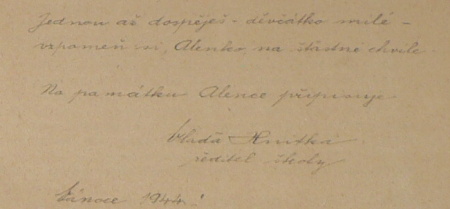 Jednou až dospěješ - děvčátko milé -
vzpomeň si, Alenko, na šťastné chvíle.
Na památku Alence připisuje
Vláďa
ředitel školy
Vánoce 1944.